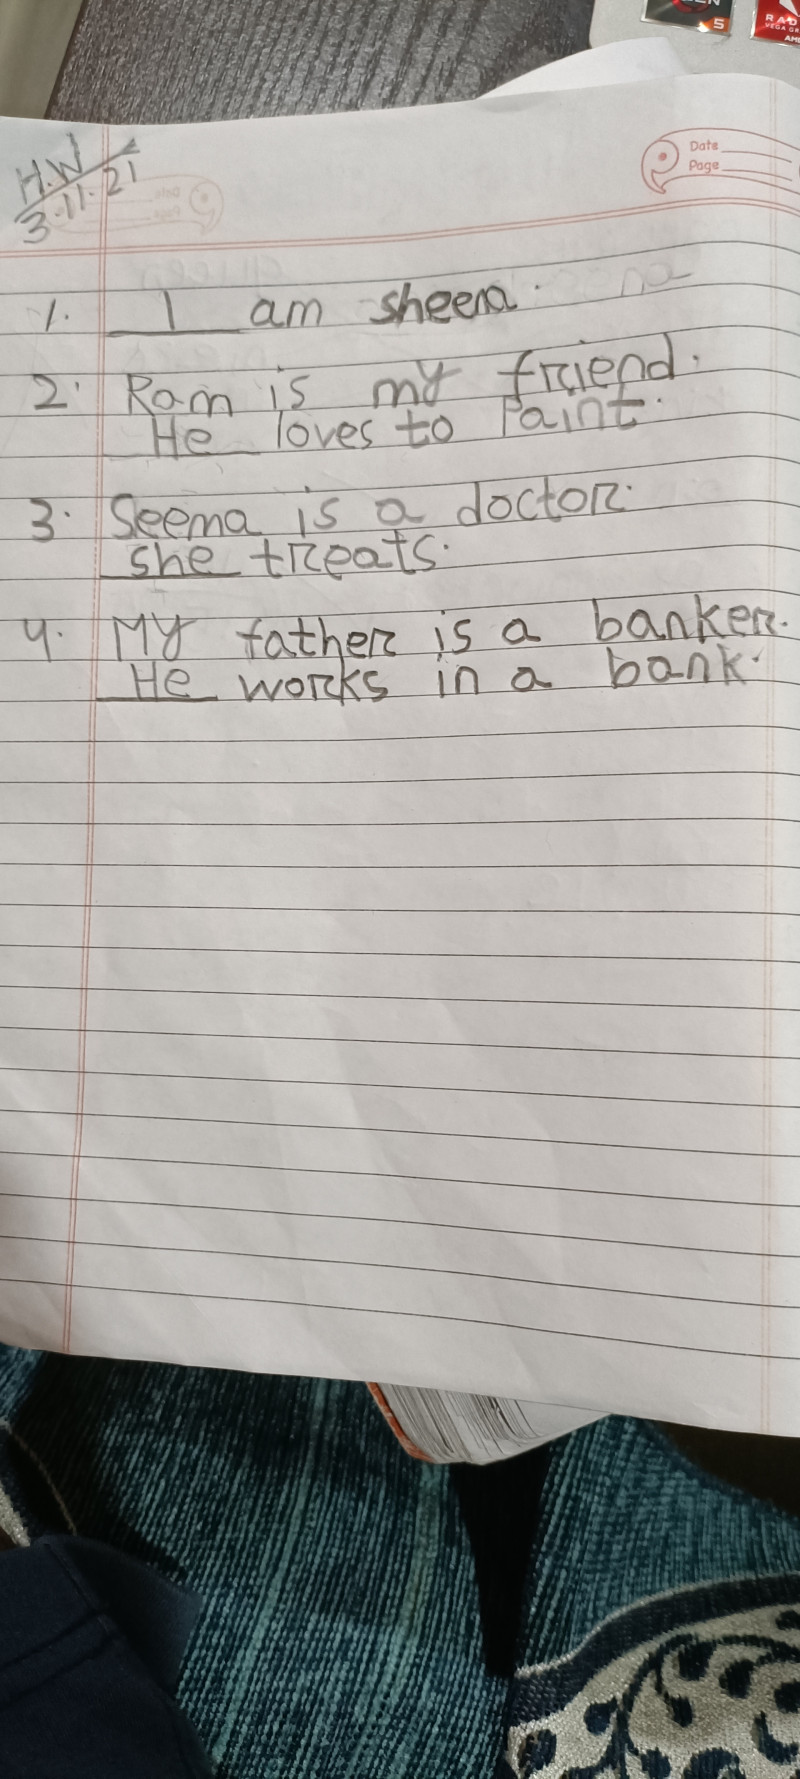 H.W
3.11.21
Date
Page
5
1. I am sheena.
2. Ram is my friend.
He loves to Paint.
3. Seema is a doctor.
she treats.
4. My father is a banker.
He works in a bank.